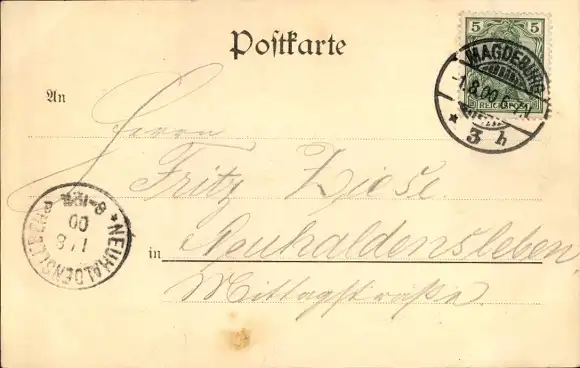 Postkarte
5 5
REICHSPOST
MAGDEBURG
1.8.00 6-7 N
* 3 h
An
Herrn
Fritz Ziese.
in Neuhaldensleben,
Mittagstraße.
* NEUHALDENSLEBEN
1/8
00